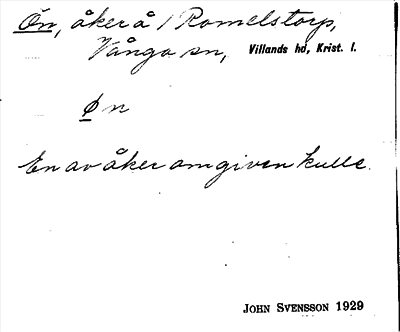 Ön, åker å 1 Romelstorp,
Vånga sn, Villands hd, Krist. l.
Ø n
En av åker omgiven kulle.
JOHN SVENSSON 1929